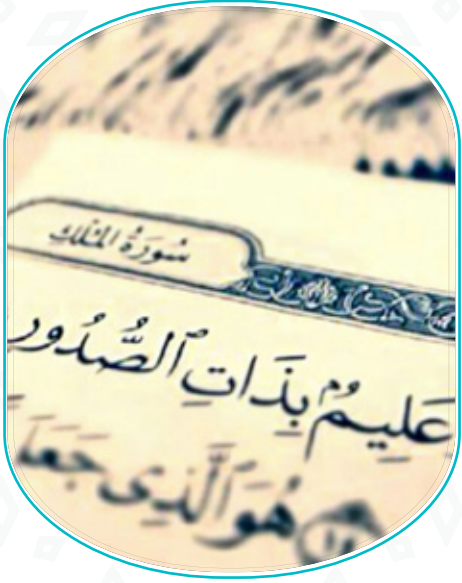 سُورَةُ المُلْكِ
عَلِيمٌۢ بِذَاتِ ٱلصُّدُورِ
هُوَ ٱلَّذِى جَعَلَ